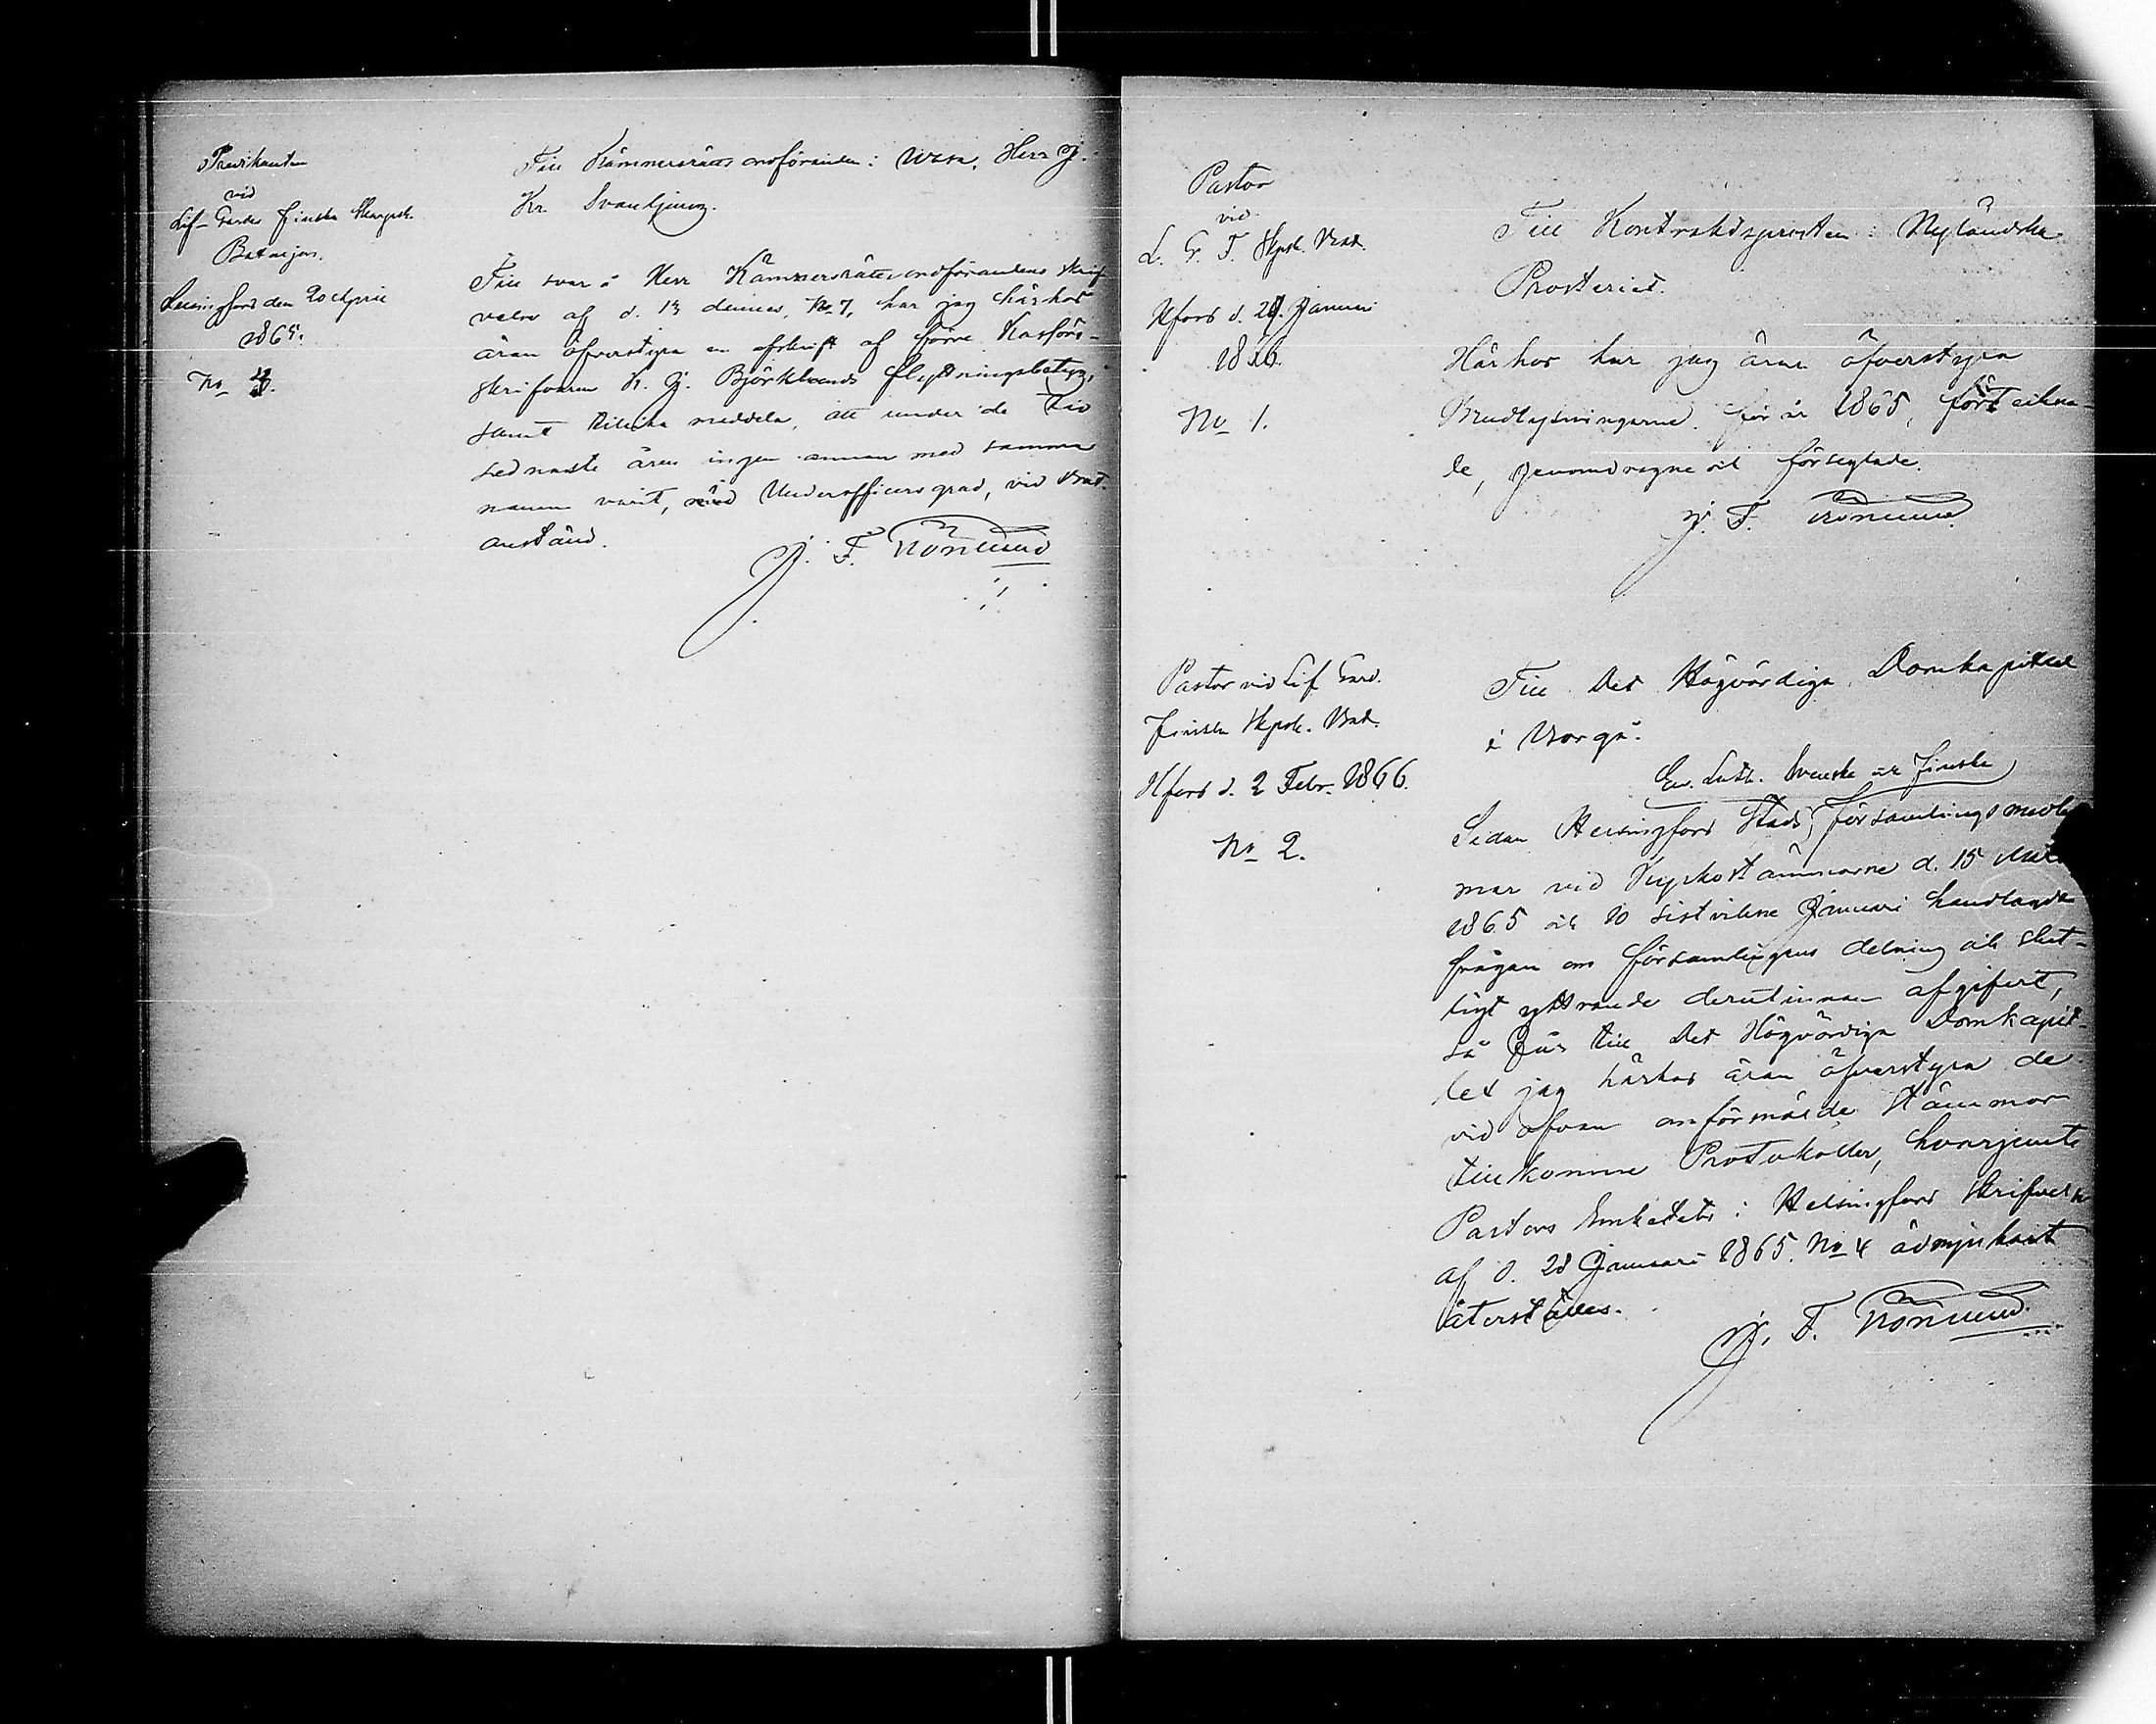 Predikanten
vid
Lif-Gardes Finska Skarpsk.
Bataljon.
Helsingfors den 20 April
1865.
No 4.
Till Kämnersrättsordföranden i Wasa, Herr J.
Kr. Svanljung.
Till svar å Herr Kämnersrättsordförandens skrif
velse af d. 13 dennes, No 7, har jag härhos
äran öfverstyra en afskrift af förre Kasförs-
skrifvaren K. J. Björklunds flyttningsbetyg,
samt tillika meddela, att under de tio
sednaste åren ingen annan med samma
namn varit, med Underofficers grad, vid Bat.
anstäld.
J. F. Könlund
Pastor
vid
L. G. F. Skpsk. Bat.
Hfors d. 27. Januari
1866.
No 1.
Till Kontraktsprosten i Nyländska
Prosteriet.
Härhos har jag äran öfverstyra
Brudlysningarne för år 1865, förteckna-
de, genomdragne och förseglade.
J. F. Könlund
Pastor vid Lif Gard.
Finska Skpsk. Bat.
Hfors d. 2 Febr. 1866.
No 2.
Till Det Högvördiga Domkapitlet
i Borgå.
Ev. Luth. Svenska och Finska
Sedan Helsingfors Stads församlings medle
mar vid Kyrkostämmorne d. 15
1865 och 10 sistvikne Januari handlagdt
frågan om församlingens delning och slut-
ligt yttrande derutinnan afgifvit,
så får till Det Högvördiga Domkapit-
let jag härhos äran öfverstyra de
vid ofvan anförmälde Stämmor
tillkomne Protokoller, hvarjemte
Pastors Embetets i Helsingfors skrifvelse
af d. 28 Januari 1865. No 4 ödmjukast
återställes.
J. F. Könlund